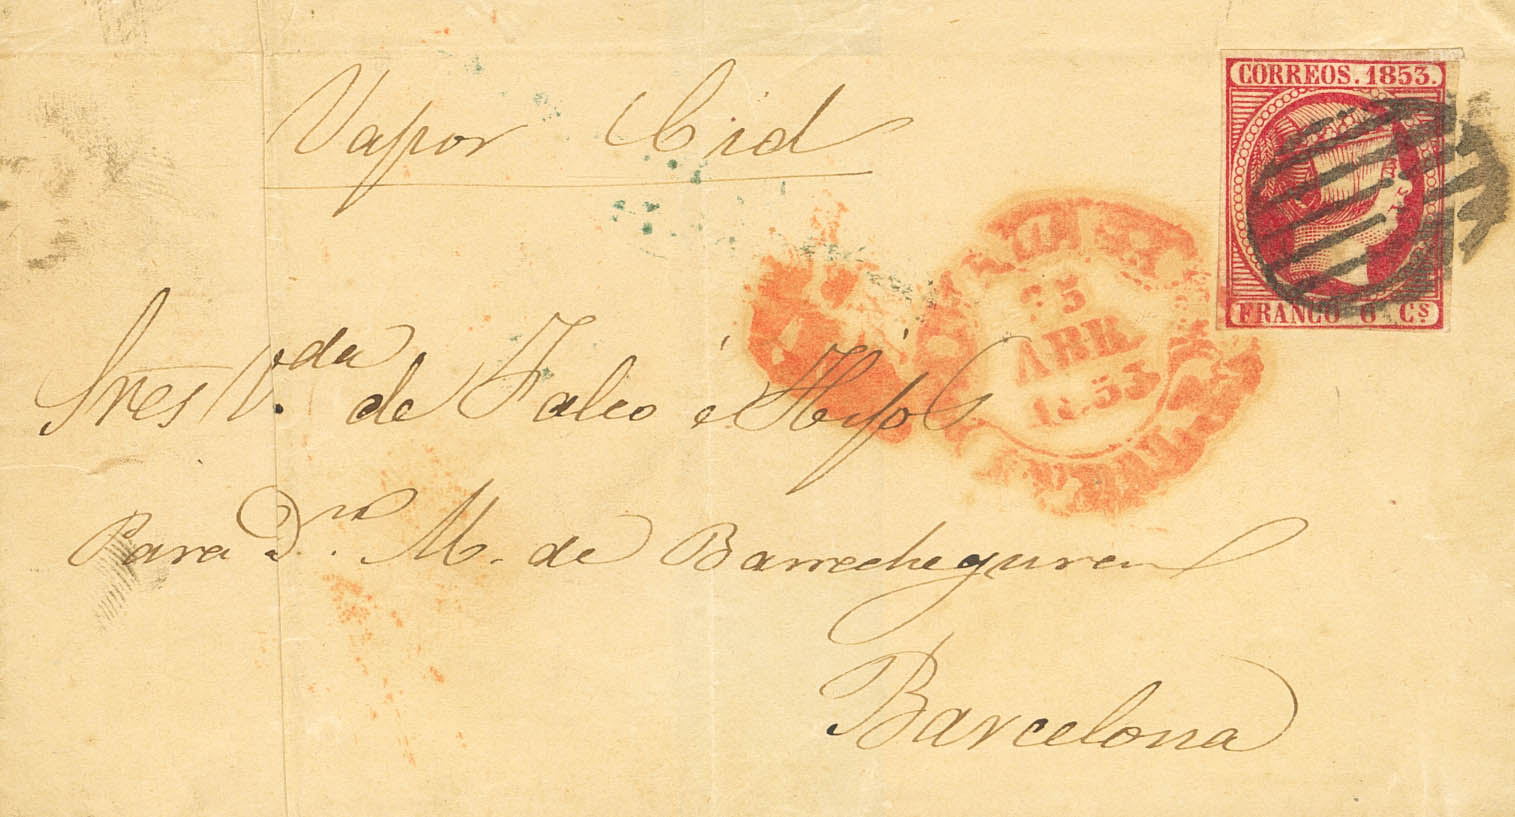 Vapor Cid
CORREOS. 1853.
FRANCO 6 Cs
25
ABR
1853
Sres V.da de Falcó é Hijos
Para Dn. M. de Barrecheguren
Barcelona